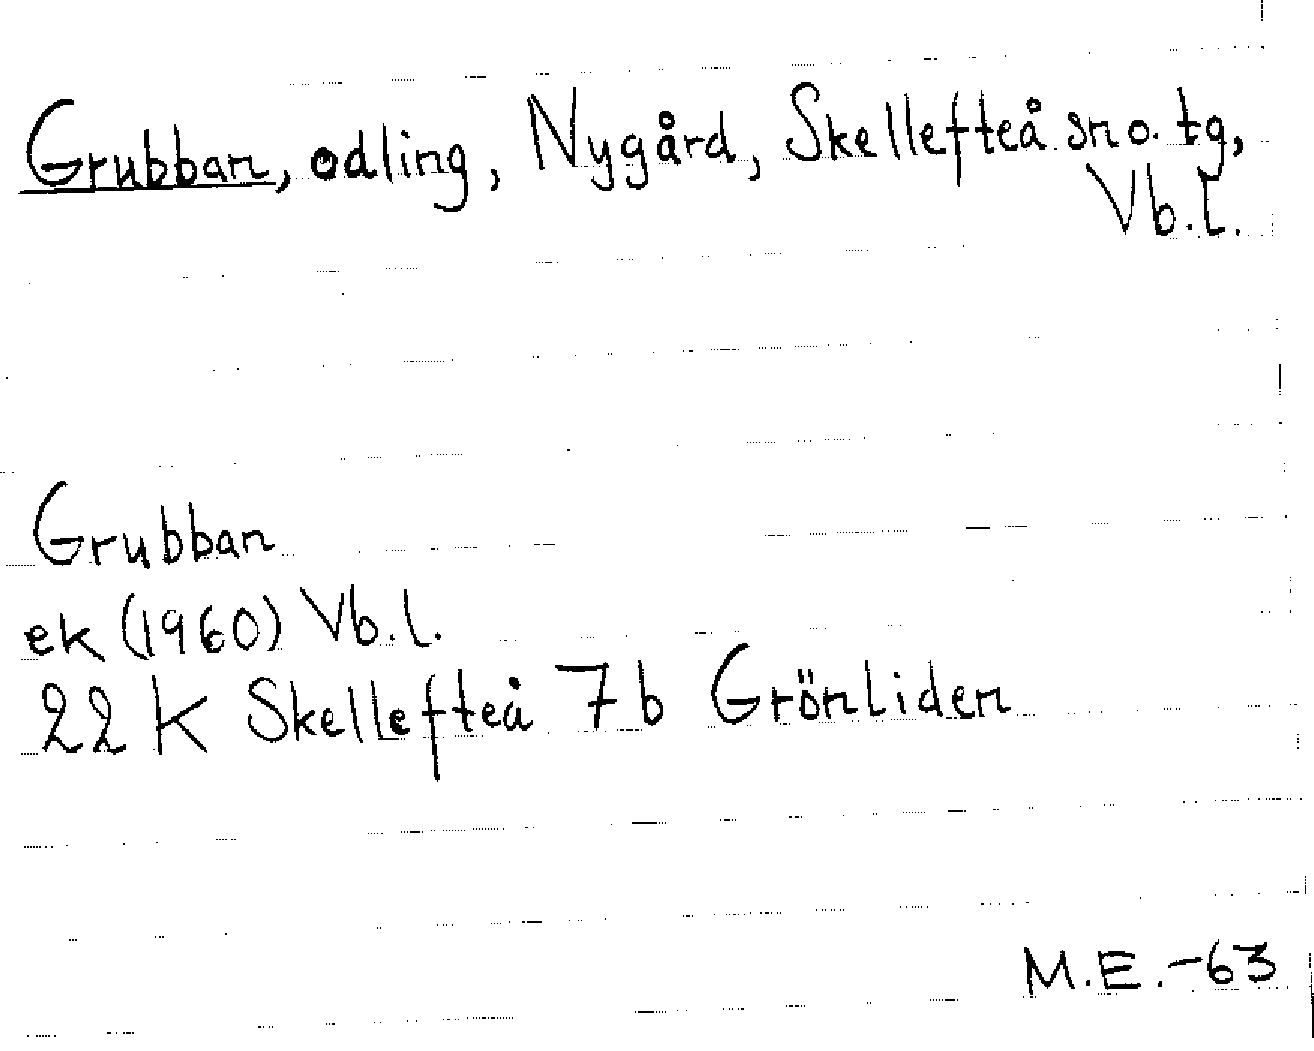 Grubban, odling, Nygård, Skellefteå sn o. tg,
Vb.l.
Grubban
ek (1960) Vb.l.
22 K Skellefteå 7b Grönliden
M.E.-63